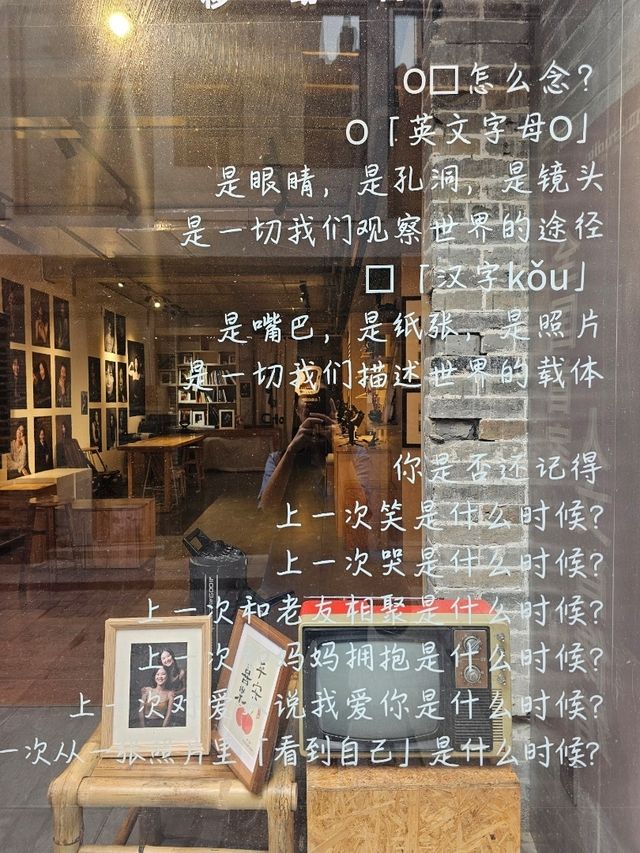 O口怎么念？
O「英文字母O」
是眼睛，是孔洞，是镜头
是一切我们观察世界的途径
口「汉字kǒu」
是嘴巴，是纸张，是照片
是一切我们描述世界的载体
你是否还记得
上一次笑是什么时候?
上一次哭是什么时候?
上一次和老友相聚是什么时候?
上一次 妈妈拥抱是什么时候?
上一次对爱 说我爱你是什么时候?
一次从一张照片里「看到自己」是什么时候?
平安
喜乐